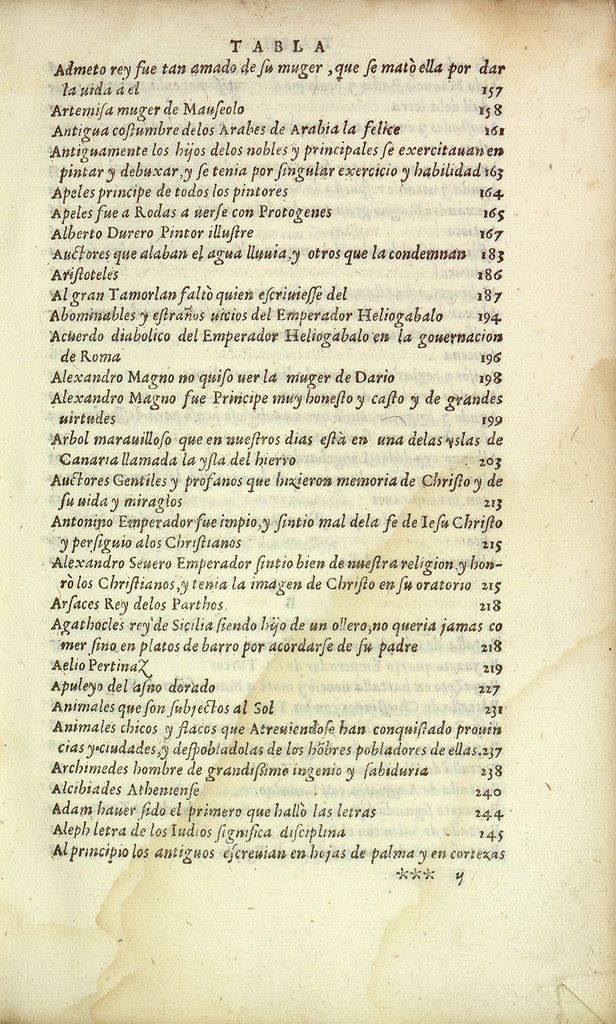 TABLA
Admeto rey fue tan amado de ſu muger, que ſe matò ella por dar
la uida à el 157
Artemiſa muger de Mauſeolo 158
Antigua coſtumbre delos Arabes de Arabia la felice 161
Antiguamente los hijos delos nobles y principales ſe exercitauan en
pintar y debuxar, y ſe tenia por ſingular exercicio y habilidad 163
Apeles principe de todos los pintores 164
Apeles fue a Rodas a uerſe con Protogenes 165
Alberto Durero Pintor illuſtre 167
Auctores que alaban el agua lluuia, y otros que la condemnan 183
Ariſtoteles 186
Al gran Tamorlan faltò quien eſcriuieſſe del 187
Abominables y eſtraños uicios del Emperador Heliogabalo 194
Acuerdo diabolico del Emperador Heliogabalo en la gouernacion
de Roma 196
Alexandro Magno no quiſo uer la muger de Dario 198
Alexandro Magno fue Principe muy honeſto y caſto y de grandes
uirtudes 199
Arbol marauilloſo que en nueſtros dias eſtà en una delas yslas de
Canaria llamada la yſla del hierro 203
Auctores Gentiles y profanos que hizieron memoria de Chriſto y de
ſu uida y miraglos 213
Antonino Emperador fue impio, y ſintio mal dela fe de Ieſu Chriſto
y perſiguio alos Chriſtianos 215
Alexandro Seuero Emperador ſintio bien de nueſtra religion, y hon-
rò los Chriſtianos, y tenia la imagen de Chriſto en ſu oratorio 215
Arſaces Rey delos Parthos 218
Agathocles rey de Sicilia ſiendo hijo de un ollero, no queria jamas co
mer ſino en platos de barro por acordarſe de ſu padre 218
Aelio Pertinaz 219
Apuleyo del aſno dorado 227
Animales que ſon ſubiectos al Sol 231
Animales chicos y flacos que Atreuiendoſe han conquiſtado prouin
cias y ciudades, y deſpobladolas de los hõbres pobladores de ellas. 237
Archimedes hombre de grandiſsimo ingenio y ſabiduria 238
Alcibiades Athenienſe 240
Adam hauer ſido el primero que hallò las letras 244
Aleph letra de los Iudios ſignifica diſciplina 245
Al principio los antiguos eſcreuian en hojas de palma y en cortezas
*** ij